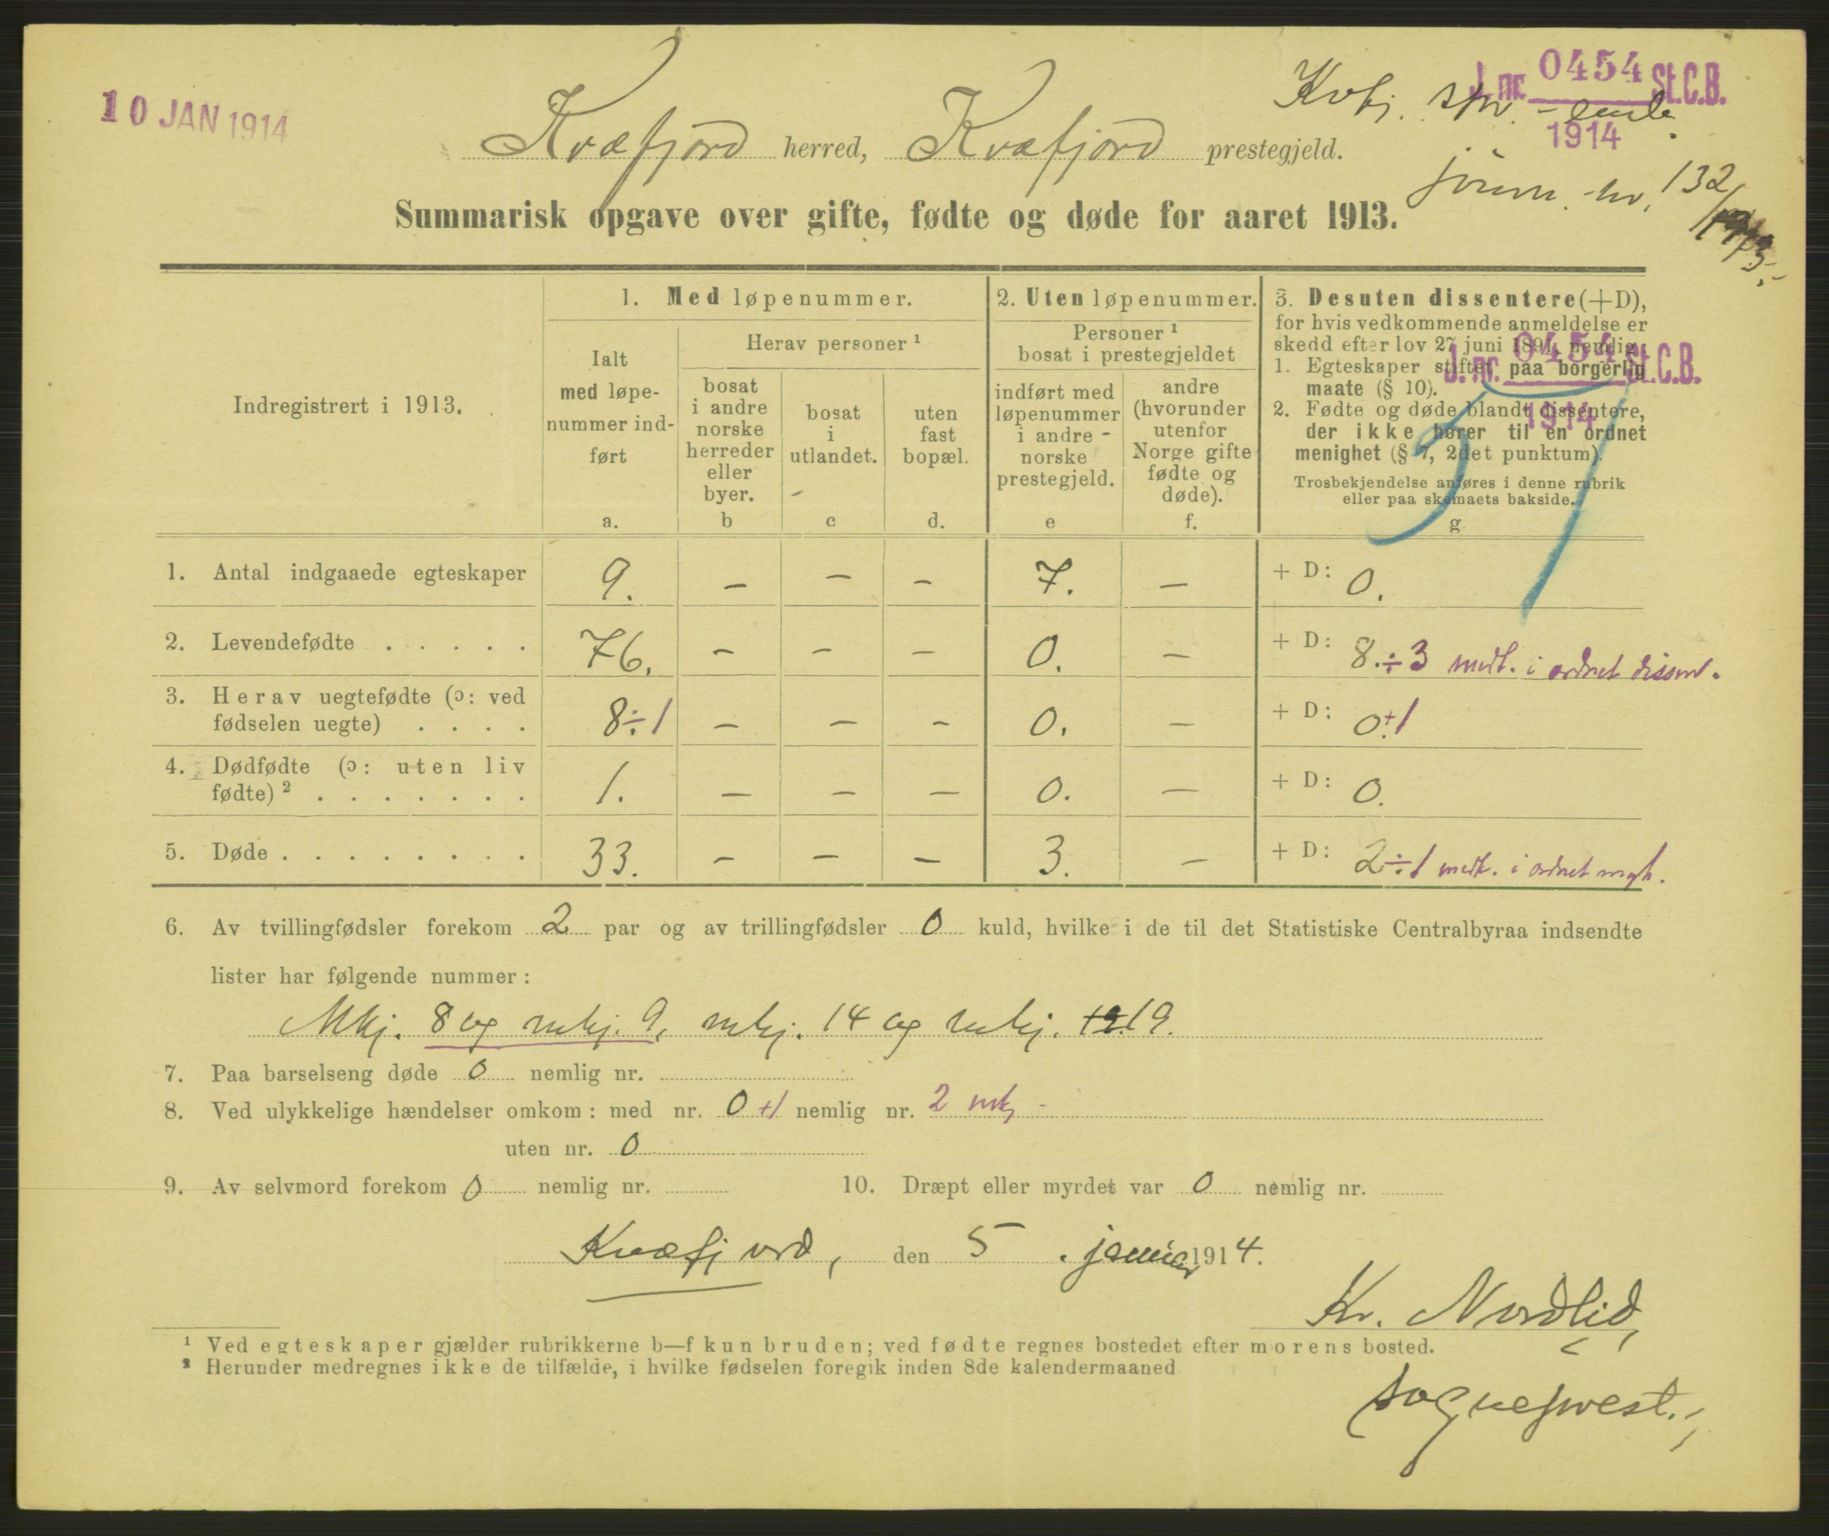 10 JAN 1914
J. nr. 0454 St.C.B.
1914
Kvæfjord herred, Kvæfjord prestegjeld.
journ. nr. 132/1913.
Summarisk opgave over gifte, fødte og døde for aaret 1913.
Indregistrert i 1913.
1. Med løpenummer.
Ialt med løpe-
nummer ind-
ført
a.
Herav personer ¹
bosat
i andre
norske
herreder
eller
byer.
b
bosat
i
utlandet.
c
uten
fast
bopæl.
d.
2. Uten løpenummer.
Personer ¹
bosat i prestegjeldet
indført med
løpenummer
i andre
norske
prestegjeld.
e
andre
(hvorunder
utenfor
Norge gifte
fødte og
døde).
f.
3. Desuten dissentere (+D),
for hvis vedkommende anmeldelse er
skedd efter lov 27 juni 1891, nemlig:
J. nr. 0454 St.C.B.
1914
1. Egteskaper stiftet paa borgerlig
maate (§ 10).
2. Fødte og døde blandt dissentere,
der ikke hører til en ordnet
menighet (§ 7, 2det punktum).
Trosbekjendelse anføres i denne rubrik
eller paa skemaets bakside.
g
1. Antal indgaaede egteskaper 9. – – – 7. – + D: 0.
2. Levendefødte . . . . . 76. – – – 0. – + D: 8. ÷ 3 medt. i ordnet dissent.
3. Herav uegtefødte (ɔ: ved
fødselen uegte) . . . . 8÷1 – – – 0. – + D: 0+1
4. Dødfødte (ɔ: uten liv
fødte) ² . . . . . . . 1. – – – 0. – + D: 0.
5. Døde . . . . . . . . . 33. – – – 3. – + D: 2÷1 medt. i ordnet mgh.
6. Av tvillingfødsler forekom 2 par og av trillingfødsler 0 kuld, hvilke i de til det Statistiske Centralbyraa indsendte
lister har følgende nummer:
Mkj. 8 og mkj. 9, mkj. 14 og mkj. 19.
7. Paa barselseng døde 0 nemlig nr.
8. Ved ulykkelige hændelser omkom: med nr. 0 +1 nemlig nr. 2 mkj
uten nr. 0
9. Av selvmord forekom 0 nemlig nr.
10. Dræpt eller myrdet var 0 nemlig nr.
Kvæfjord, den 5. januar 1914.
Kr. Nordlid,
sogneprest.
¹ Ved egteskaper gjælder rubrikkerne b—f kun bruden; ved fødte regnes bostedet efter morens bosted.
² Herunder medregnes ikke de tilfælde, i hvilke fødselen foregik inden 8de kalendermaaned